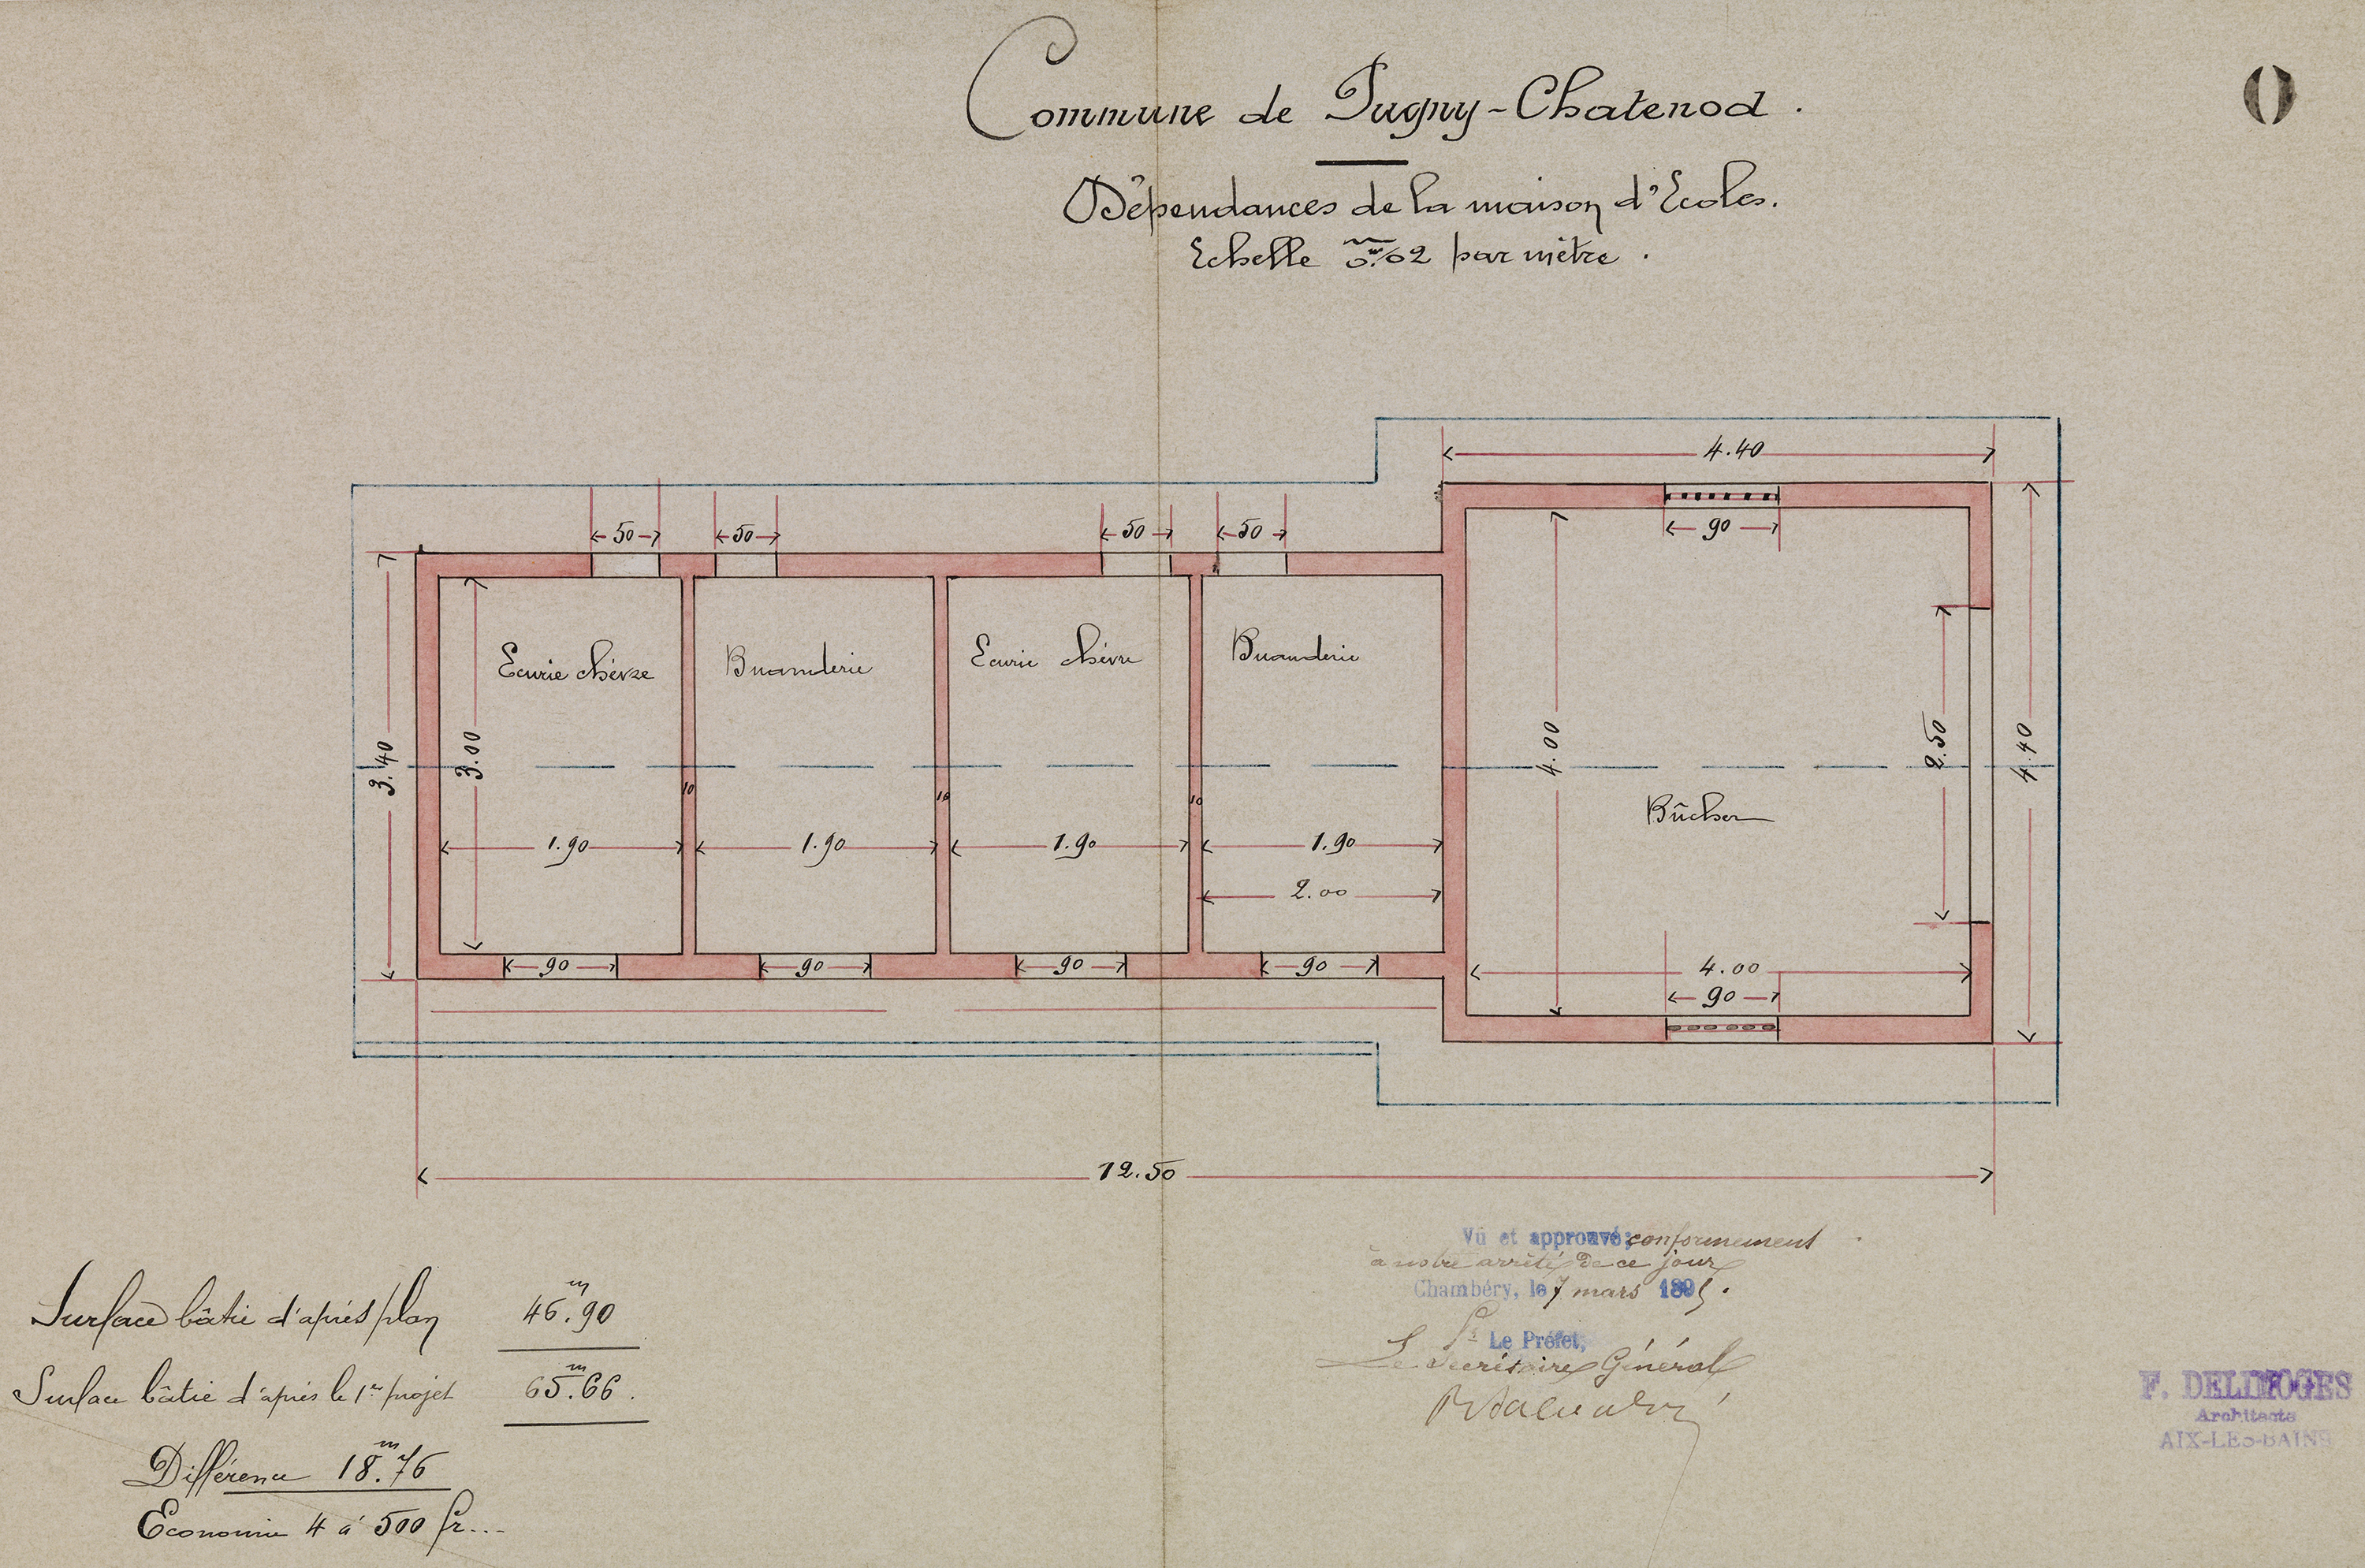 Commune de Pugny-Chatenod.
Dépendances de la maison d'Ecoles.
Echelle 0.m02 par mètre.
4.40
50 50 50 50 90
Ecurie chèvre Buanderie Ecurie chèvre Buanderie
3.40 3.00 4.00 2.50 4.40
10 10 10
Bûcher
1.90 1.90 1.90 1.90
2.00
90 90 90 90 4.00
90
12.50
Vû et approuvé; conformement
à notre arrêté de ce jour
Chambéry, le 7 mars 1895.
Pr Le Préfet,
Le Secrétaire Général
Surface bâtie d'après plan 46.m90
Surface bâtie d'après le 1er projet 65.m66.
Différence 18.m76
Economie 4 à 500 fr...
F. DELIMOGES
Architecte
AIX-LES-BAINS